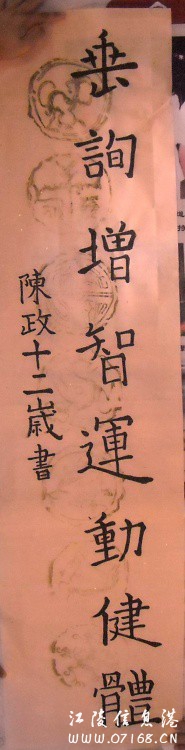 垂詢增智運動健體
陳政十二歲書
江陵信息港
www.07168.cn